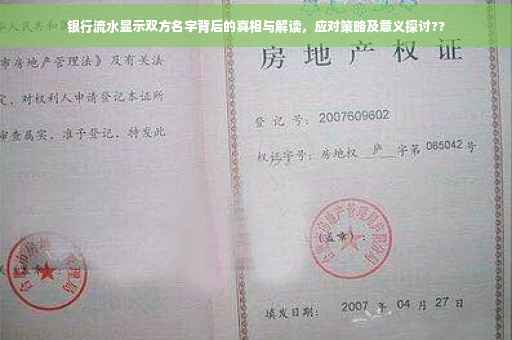 银行流水显示双方名字背后的真相与解读，应对策略及意义探讨??
华人民共和国
市房地产管理法》及有关法
定，对权利人申请登记本证所
审查属实，准予登记，特发此
房地产权证
登记号：2007609602
权证字号：房地权 庐 字第 085042 号
(盖章)：
填发日期：2007 年 04 月 27 日